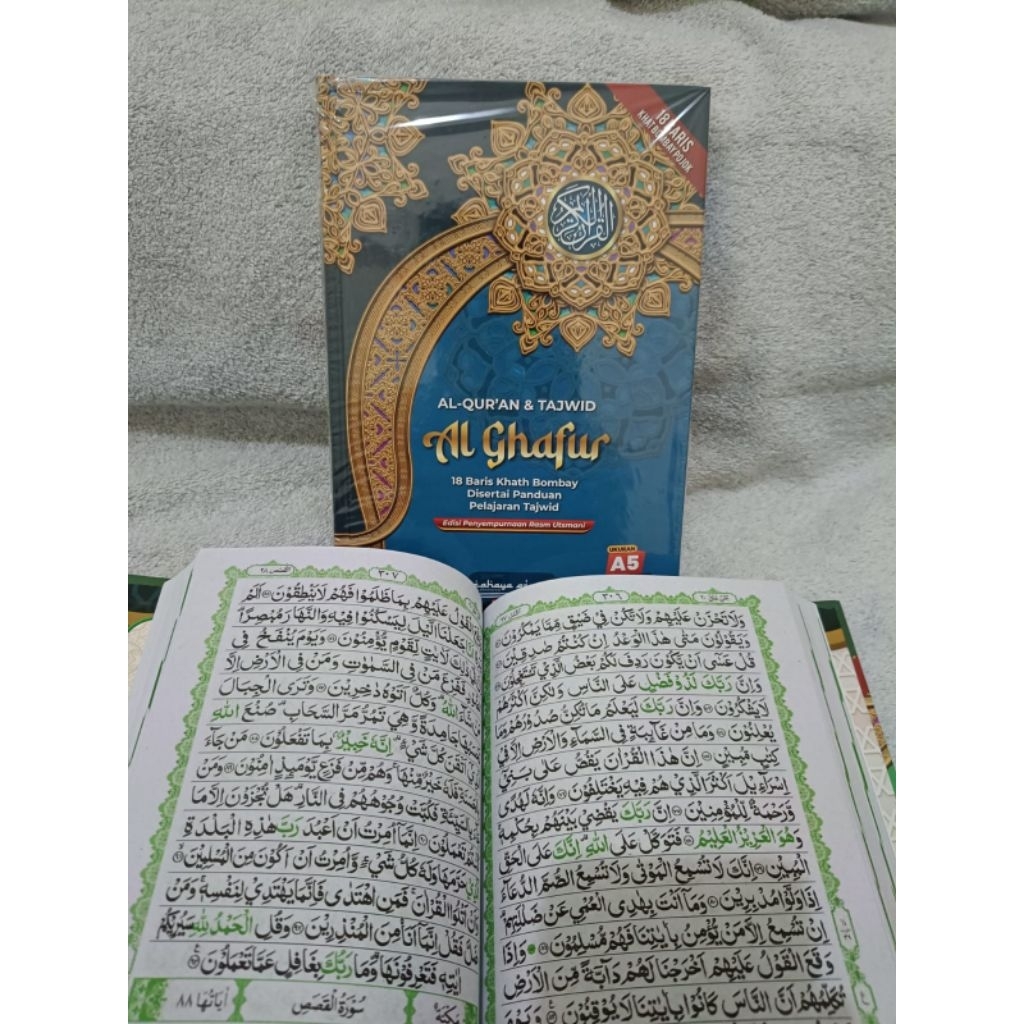 18 BARIS
KHAT BOMBAY POJOK
القرآن الكريم
AL-QUR'AN & TAJWID
Al Ghafur
18 Baris Khath Bombay
Disertai Panduan
Pelajaran Tajwid
Edisi Penyempurnaan Rasm Utsmani
UKURAN
A5
٣٠٦
وَلَا تَحْزَنْ عَلَيْهِمْ وَلَا تَكُنْ فِيْ ضَيْقٍ مِّمَّا يَمْكُرُوْنَ
وَيَقُوْلُوْنَ مَتٰى هٰذَا الْوَعْدُ اِنْ كُنْتُمْ صٰدِقِيْنَ
قُلْ عَسٰٓى اَنْ يَّكُوْنَ رَدِفَ لَكُمْ بَعْضُ الَّذِيْ تَسْتَعْجِلُوْنَ
وَاِنَّ رَبَّكَ لَذُوْ فَضْلٍ عَلَى النَّاسِ وَلٰكِنَّ اَكْثَرَهُمْ
لَا يَشْكُرُوْنَ وَاِنَّ رَبَّكَ لَيَعْلَمُ مَا تُكِنُّ صُدُوْرُهُمْ وَمَا
يُعْلِنُوْنَ وَمَا مِنْ غَاۤىِٕبَةٍ فِى السَّمَاۤءِ وَالْاَرْضِ اِلَّا فِيْ
كِتٰبٍ مُّبِيْنٍ اِنَّ هٰذَا الْقُرْاٰنَ يَقُصُّ عَلٰى بَنِيْٓ
اِسْرَاۤءِيْلَ اَكْثَرَ الَّذِيْ هُمْ فِيْهِ يَخْتَلِفُوْنَ وَاِنَّهٗ لَهُدًى
وَّرَحْمَةٌ لِّلْمُؤْمِنِيْنَ اِنَّ رَبَّكَ يَقْضِيْ بَيْنَهُمْ بِحُكْمِهٖ
وَهُوَ الْعَزِيْزُ الْعَلِيْمُ فَتَوَكَّلْ عَلَى اللّٰهِ اِنَّكَ عَلَى الْحَقِّ
الْمُبِيْنِ اِنَّكَ لَا تُسْمِعُ الْمَوْتٰى وَلَا تُسْمِعُ الصُّمَّ الدُّعَاۤءَ
اِذَا وَلَّوْا مُدْبِرِيْنَ وَمَآ اَنْتَ بِهٰدِى الْعُمْيِ عَنْ ضَلٰلَتِهِمْ
اِنْ تُسْمِعُ اِلَّا مَنْ يُّؤْمِنُ بِاٰيٰتِنَا فَهُمْ مُّسْلِمُوْنَ وَاِذَا
وَقَعَ الْقَوْلُ عَلَيْهِمْ اَخْرَجْنَا لَهُمْ دَاۤبَّةً مِّنَ الْاَرْضِ
تُكَلِّمُهُمْ اَنَّ النَّاسَ كَانُوْا بِاٰيٰتِنَا لَا يُوْقِنُوْنَ وَيَوْمَ
القصص ٢٨
٣٠٧
الْقَوْلُ عَلَيْهِمْ بِمَا ظَلَمُوْا فَهُمْ لَا يَنْطِقُوْنَ اَلَمْ
جَعَلْنَا الَّيْلَ لِيَسْكُنُوْا فِيْهِ وَالنَّهَارَ مُبْصِرًا
ذٰلِكَ لَاٰيٰتٍ لِّقَوْمٍ يُّؤْمِنُوْنَ وَيَوْمَ يُنْفَخُ فِى
فَفَزِعَ مَنْ فِى السَّمٰوٰتِ وَمَنْ فِى الْاَرْضِ اِلَّا
شَاۤءَ اللّٰهُ وَكُلٌّ اَتَوْهُ دٰخِرِيْنَ وَتَرَى الْجِبَالَ
تَحْسَبُهَا جَامِدَةً وَّهِيَ تَمُرُّ مَرَّ السَّحَابِ صُنْعَ اللّٰهِ
الَّذِيْٓ اَتْقَنَ كُلَّ شَيْءٍ اِنَّهٗ خَبِيْرٌ بِمَا تَفْعَلُوْنَ مَنْ جَاۤءَ
بِالْحَسَنَةِ فَلَهٗ خَيْرٌ مِّنْهَا وَهُمْ مِّنْ فَزَعٍ يَّوْمَىِٕذٍ اٰمِنُوْنَ وَمَنْ
بِالسَّيِّئَةِ فَكُبَّتْ وُجُوْهُهُمْ فِى النَّارِ هَلْ تُجْزَوْنَ اِلَّا مَا
تَعْمَلُوْنَ اِنَّمَآ اُمِرْتُ اَنْ اَعْبُدَ رَبَّ هٰذِهِ الْبَلْدَةِ
حَرَّمَهَا وَلَهٗ كُلُّ شَيْءٍ وَّاُمِرْتُ اَنْ اَكُوْنَ مِنَ الْمُسْلِمِيْنَ
وَاَنْ اَتْلُوَا الْقُرْاٰنَ فَمَنِ اهْتَدٰى فَاِنَّمَا يَهْتَدِيْ لِنَفْسِهٖ وَمَنْ
ضَلَّ فَقُلْ اِنَّمَآ اَنَا مِنَ الْمُنْذِرِيْنَ وَقُلِ الْحَمْدُ لِلّٰهِ سَيُرِيْكُمْ
اٰيٰتِهٖ فَتَعْرِفُوْنَهَا وَمَا رَبُّكَ بِغَافِلٍ عَمَّا تَعْمَلُوْنَ
سُوْرَةُ الْقَصَصِ
اٰيَاتُهَا ٨٨